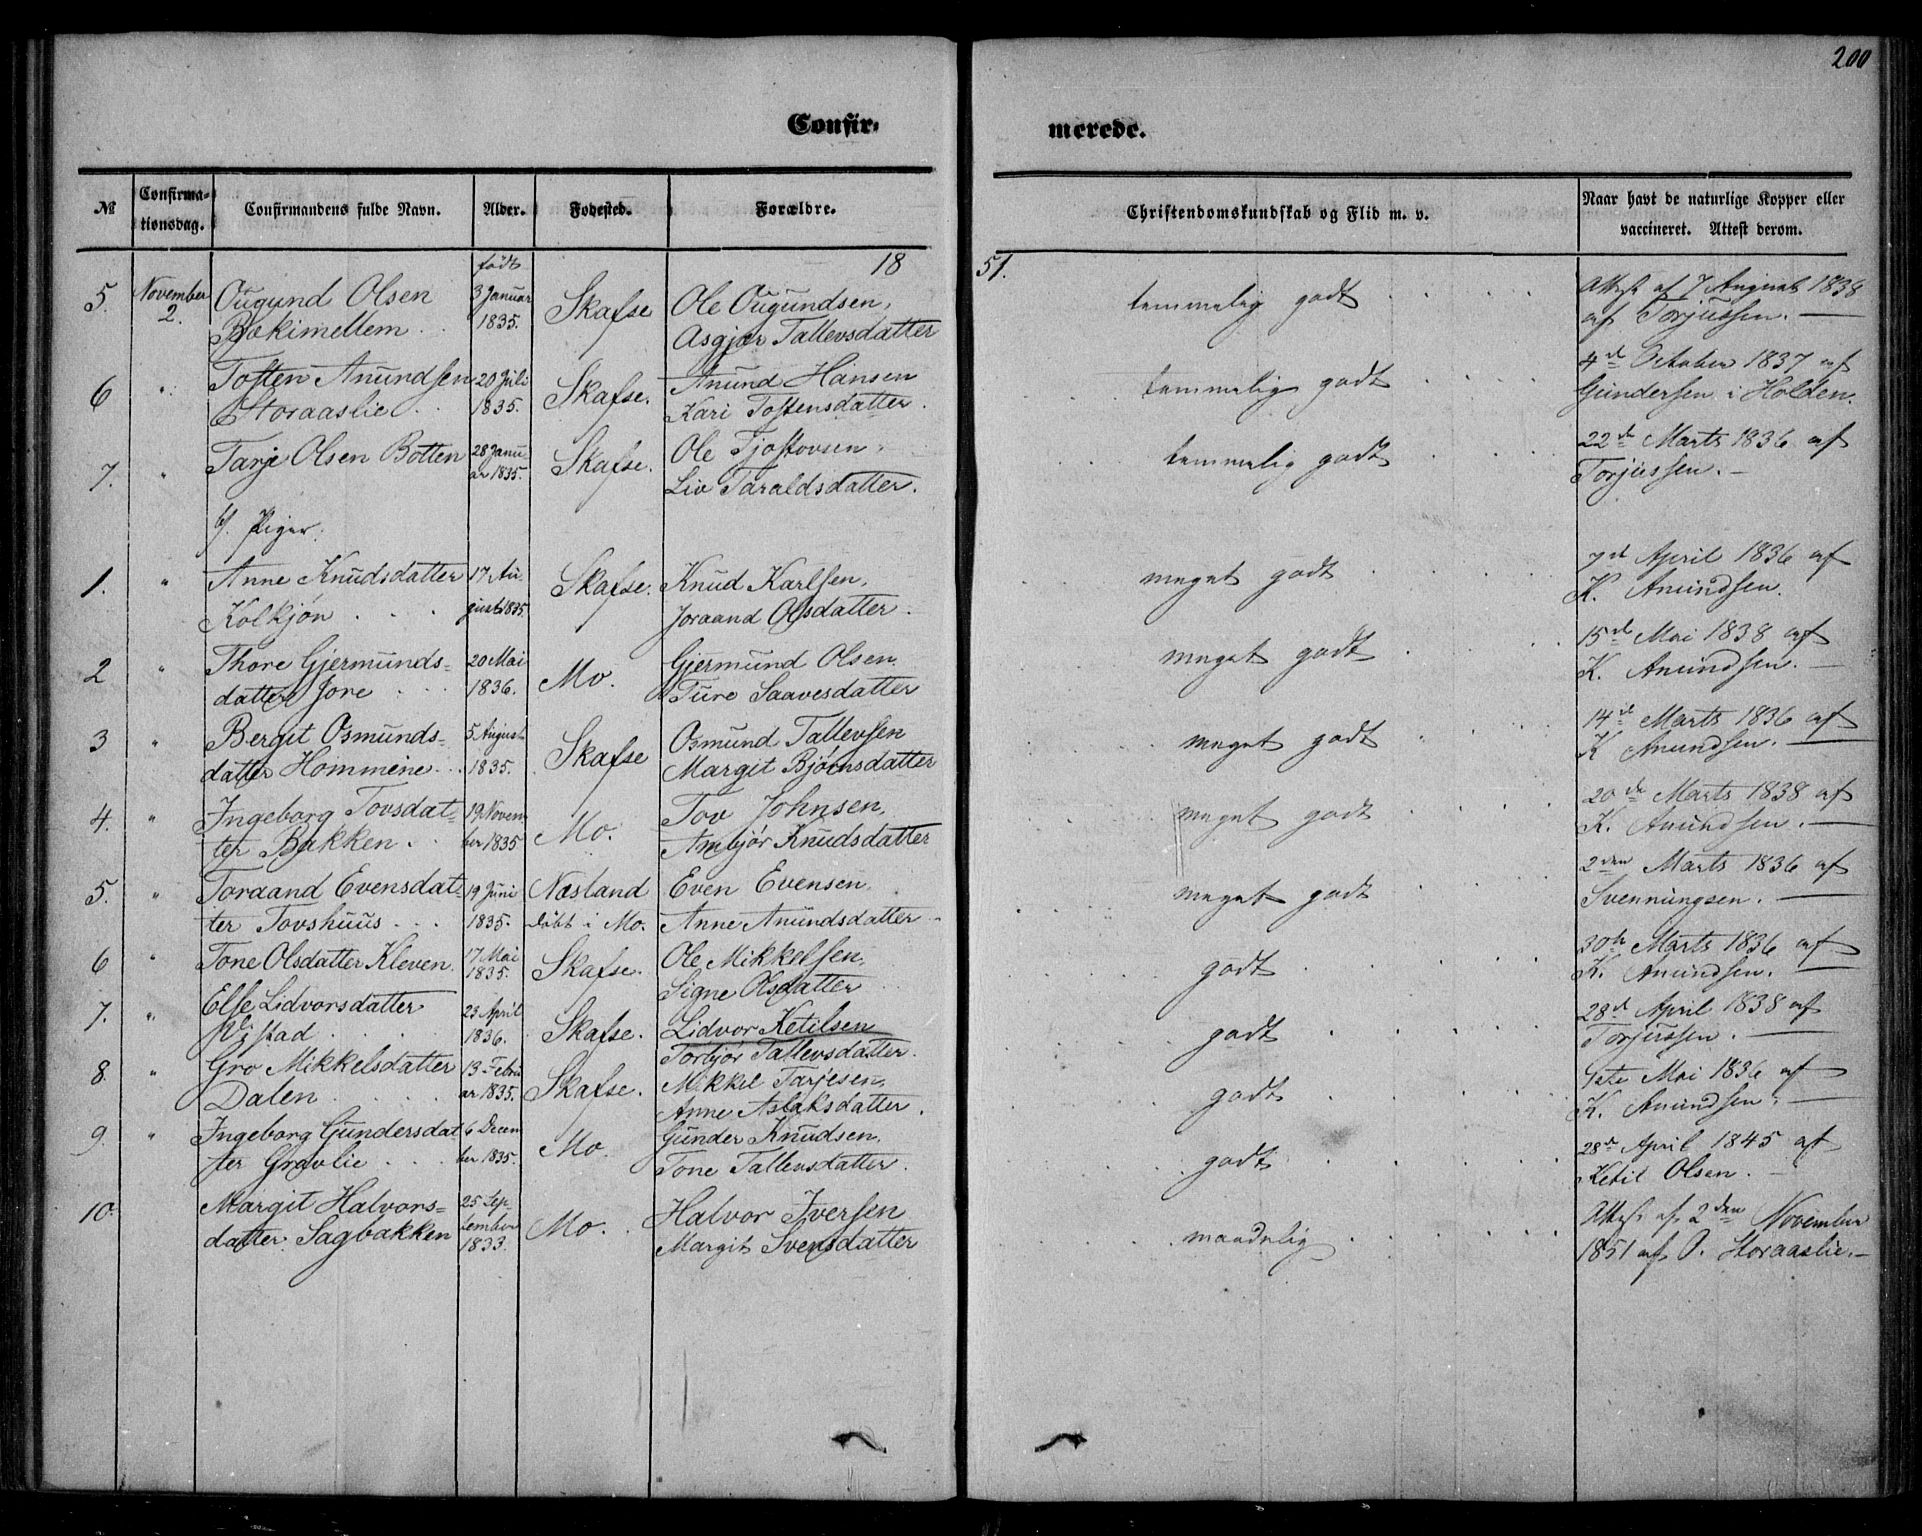 200
Confir-
merede.
№
Confirma-
tionsdag.
Confirmandens fulde Navn.
Alder.
Fødested.
Forældre.
Christendomskundskab og Flid m. v.
Naar havt de naturlige Kopper eller
vaccineret. Attest derom.
18
51.
født
5. November 2. Ougund Olsen 3 Januar Skafse Ole Ougundsen, temmelig godt Attest af 7 August 1838
1835. Asgjær Tallevsdatter af Torjussen.
6 " Tosten Anundsen 20 Juli Skafse. Anund Hansen temmelig godt 4de October 1837 af
Storaaslie 1835. Kari Tostensdatter. Gundersen i Holden.
7. " Tarje Olsen Botten 28 Janu- Skafse. Ole Tjostovsen, temmelig godt 22de Marts 1836 af
ar 1835. Liv Taraldsdatter. Torjussen.
b/ Piger.
1. " Anne Knudsdatter 17 Au- Skafse. Knud Karlsen, meget godt 7de April 1836 af
Kolkjøn gust 1835 Joraand Olsdatter. K. Anundsen.
2 " Thore Gjermunds- 20 Mai Mo. Gjermund Olsen, meget godt 15de Mai 1838 af
datter Jore 1836. Ture Saavesdatter K. Anundsen.
3 " Bergit Osmunds- 5 August Skafse Osmund Tallevsen meget godt 14de Marts 1836 af
datter Hommene 1835. Margit Bjørnsdatter K Anundsen.
4. " Ingeborg Tovsdat- 19 Novem Mo. Tov Johnsen, meget godt 20de Marts 1838 af
ter Bakken. ber 1835 Ambjør Knudsdatter K. Anundsen.
5. " Toraand Evensdat- 19 Juni Næsland Even Evensen, meget godt 2den Marts 1836 af
ter Tovshuus 1835. døbt i Mo. Anne Anundsdatter Svennungsen.
6 " Tone Olsdatter Kleven. 17 Mai Skafse. Ole Mikkelsen, godt 30te Marts 1836 af
1835. Signe Olsdatter K. Anundsen.
7. " Else Lidvorsdatter 23 April Skafse. Lidvor Ketilsen godt 28de April 1838 af
1836. Torbjør Tallevsdatter. Torjussen.
8. " Gro Mikkelsdatter 13 Febru Skafse. Mikkel Tarjesen, godt 1ste Mai 1836 af
Dalen ar 1835. Anne Aslaksdatter. K. Anundsen.
9. " Ingeborg Gundersdat 6 Decem Mo. Gunder Knudsen, godt 28de April 1845 af
ter Gravlie ber 1835. Tone Tallevsdatter. Ketil Olsen.
10. Margit Halvors- 25 Sep- Mo. Halvor Iversen maadelig Attest af 2den November
datter Sagbakken tember 1833. Margit Svensdatter 1851 af O. Storaaslie.